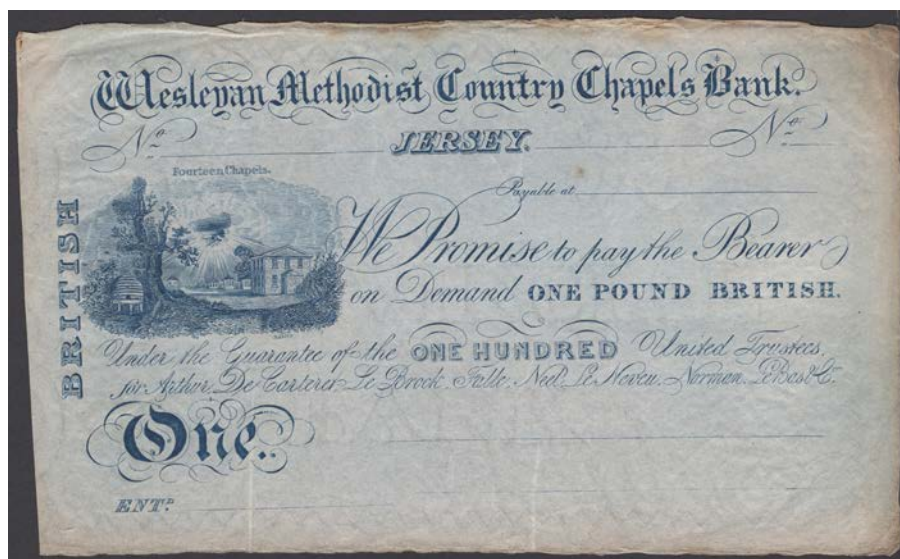 Wesleyan Methodist Country Chapels Bank.
No. JERSEY. No.
Fourteen Chapels.
Payable at
BRITISH
We Promise to pay the Bearer
on Demand ONE POUND BRITISH.
Under the Guarantee of the ONE HUNDRED United Trustees.
for Arthur, De Carteret, Le Brock, Falle, Neel, Le Neveu, Norman, Le Bas & Co.
One.
ENTD.